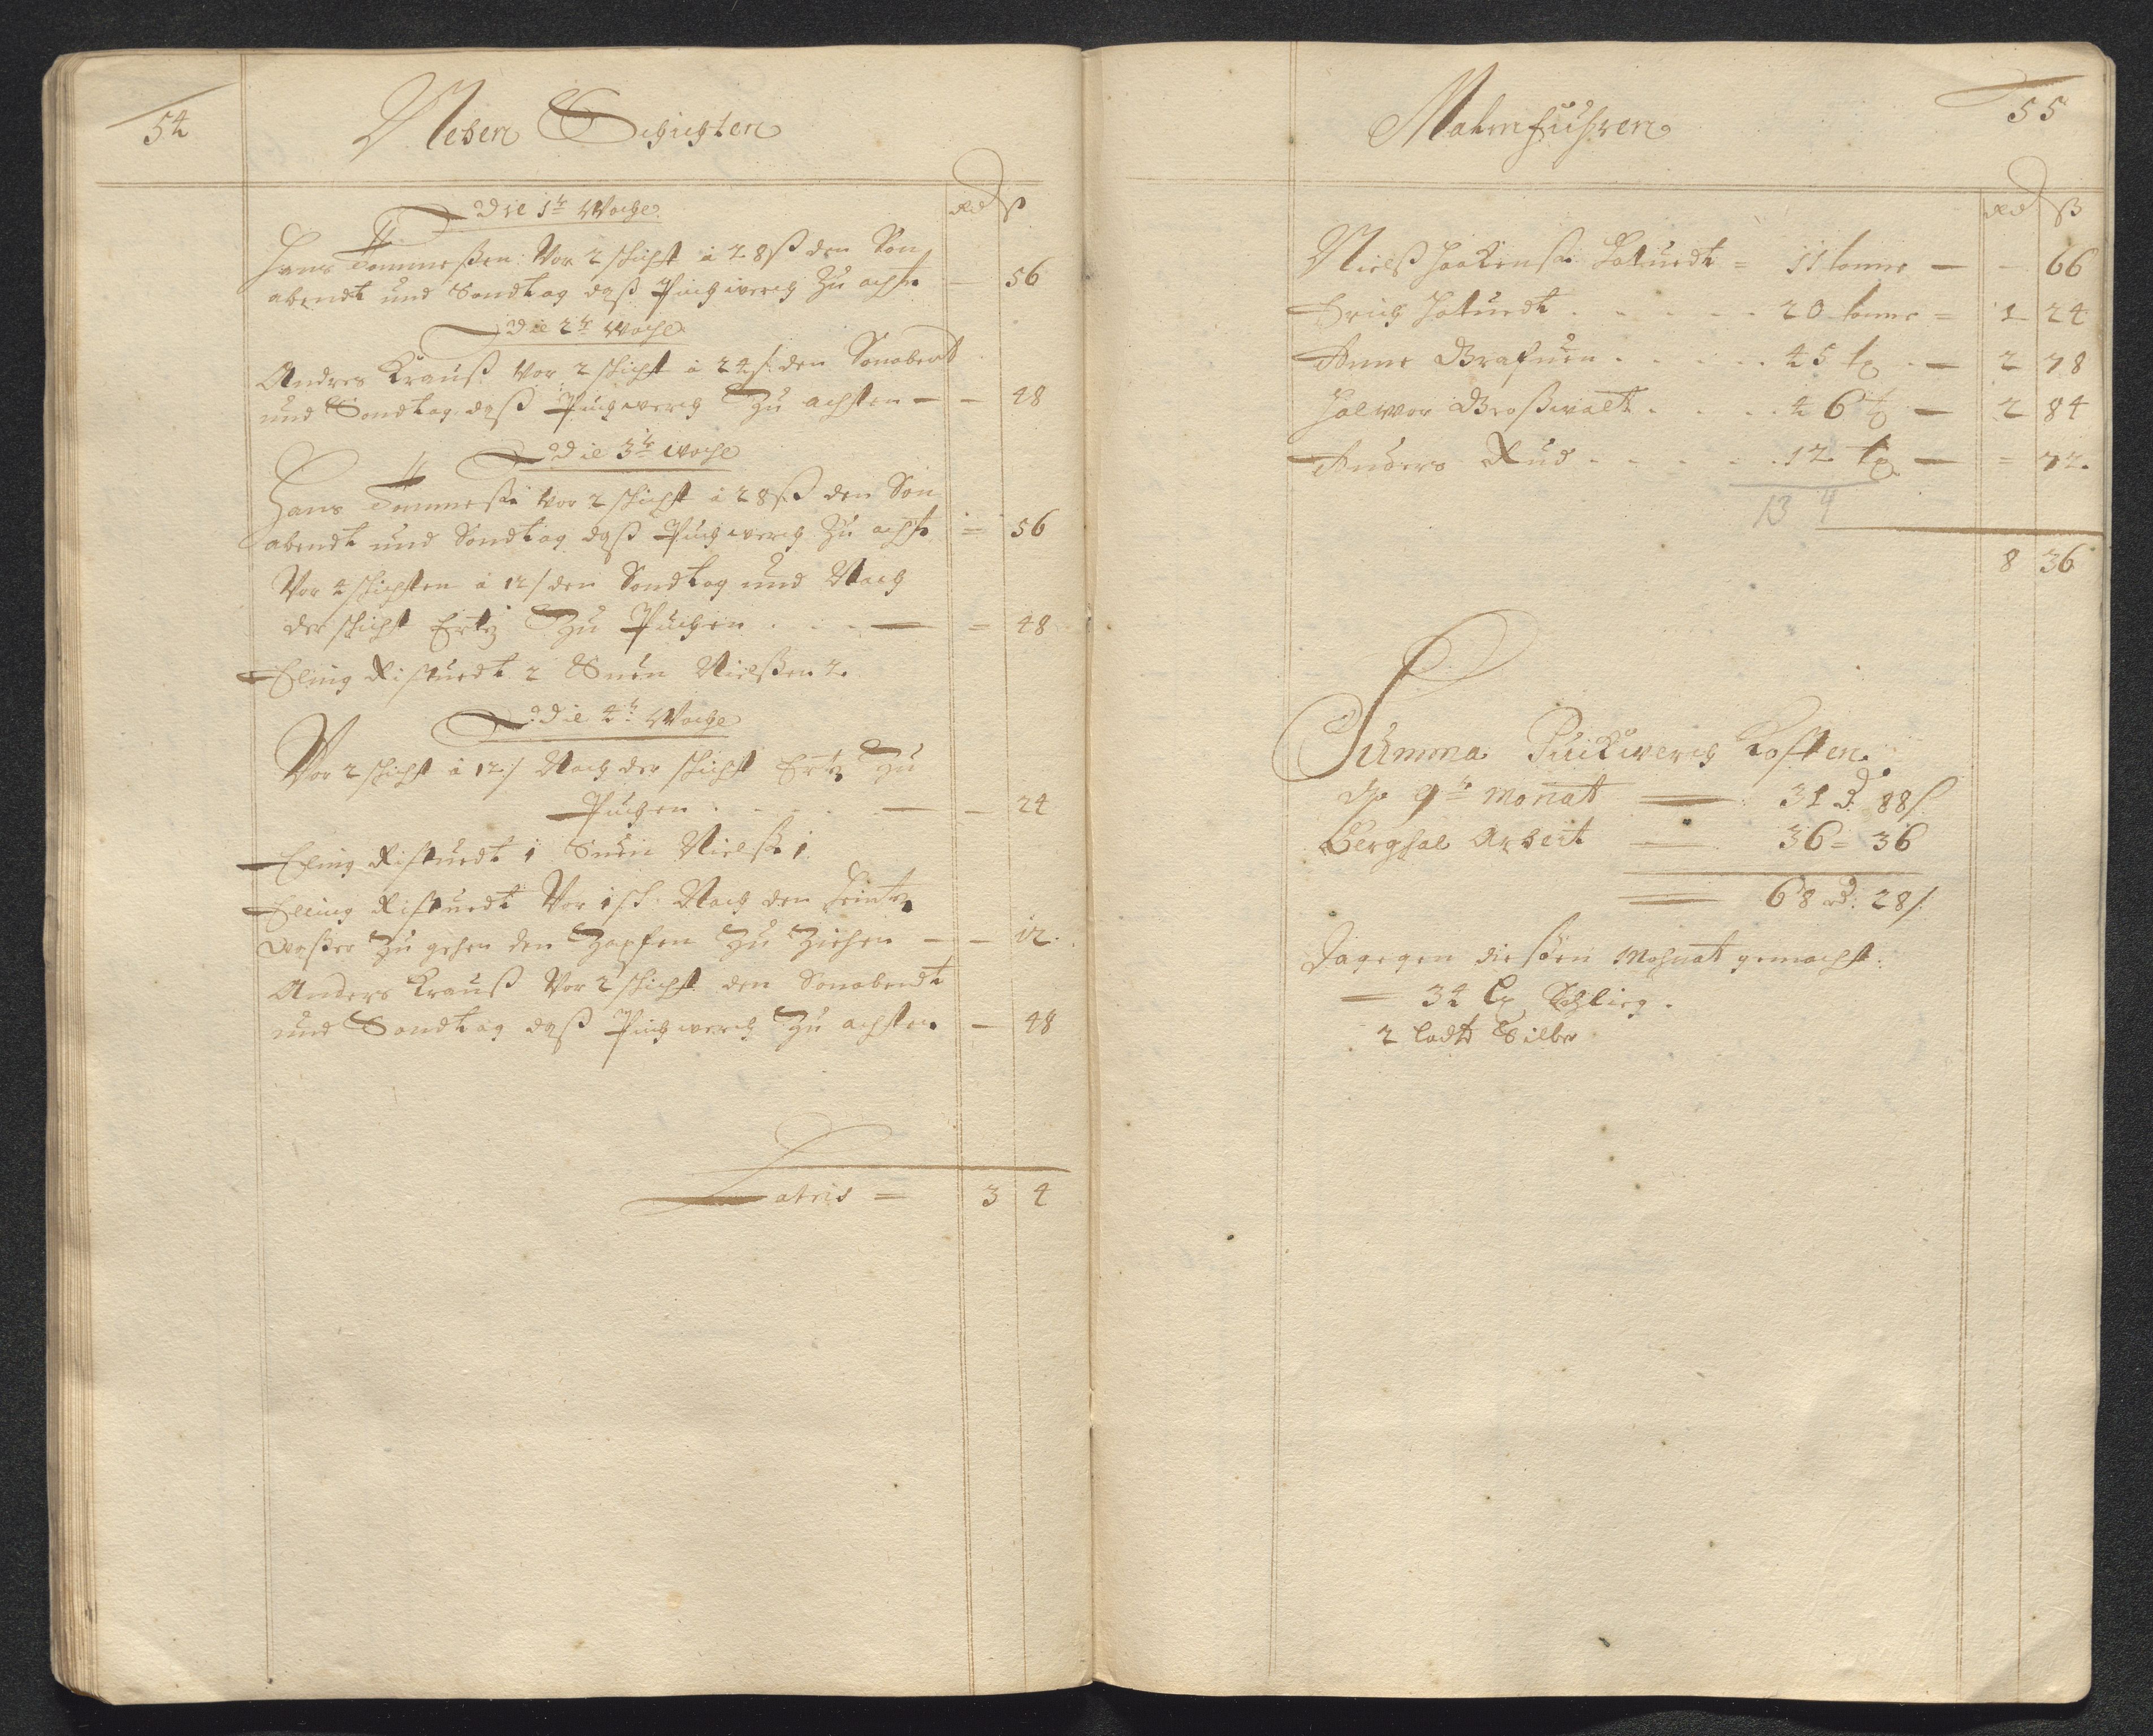 54
Neben Schichten
Rd ß
Die 1te Woche
Hans Tommeßen: Vor 2 schicht â 28 ß den Son
abendt und Sondtag daß Puchwerch Zu achtn — 56
Die 2te Woche
Andres Krauß Vor 2 schicht â 24 ß: den Sonabent
und Sondtag daß Puchwerch Zu achten — — 48
Die 3te Woche
Hans Tommeßn Vor 2 schicht â 28 ß den Son
abendt und Sondtag daß Puchwerch Zu achtn = 56
Vor 4 schichten â 12 ß den Sondtag und Nach
der schicht Ertz Zu Puchen . . . — = 48
Eling Ristuedt 2 Suen Nielßen 2.
Die 4te Woche
Vor 2 schicht â 12 ß Nach der schicht Ertz Zu
Puchen . . . . — — 24
Eling Ristuedt 1 Suen Nielßn 1.
Elling Ristuedt Vor 1 sch. Nach den
waßer Zu gehen den Zapfen Zu Ziehen — — 12.
Anders Krauß Vor 2 schicht den Sonabendt
und Sondtag daß Puchwerch Zu achten — 48
Latris = 3 4
55
Malmfuhren
Rd ß
Nielß Haakenßn Hotuedt = 11 tonne — — 66
Erich Hotuedt . . . . . 20 tonne = 1 24
Anne Grafuen . . . . . 45 t — 2 78
Halwor Großwalt . . . . 46 t — 2 84
Anders Rud . . . . . 12 t — = 72.
134
8 36
Summa Puckwerch Kosten
9te Monat — 31 d. 88 ß.
Berghal Arbeit — 36 = 36
— 68 rd: 28 ß.
Dagegen dießen Mohnat gemacht.
— 34 Schlieg.
2 Lodt Silber